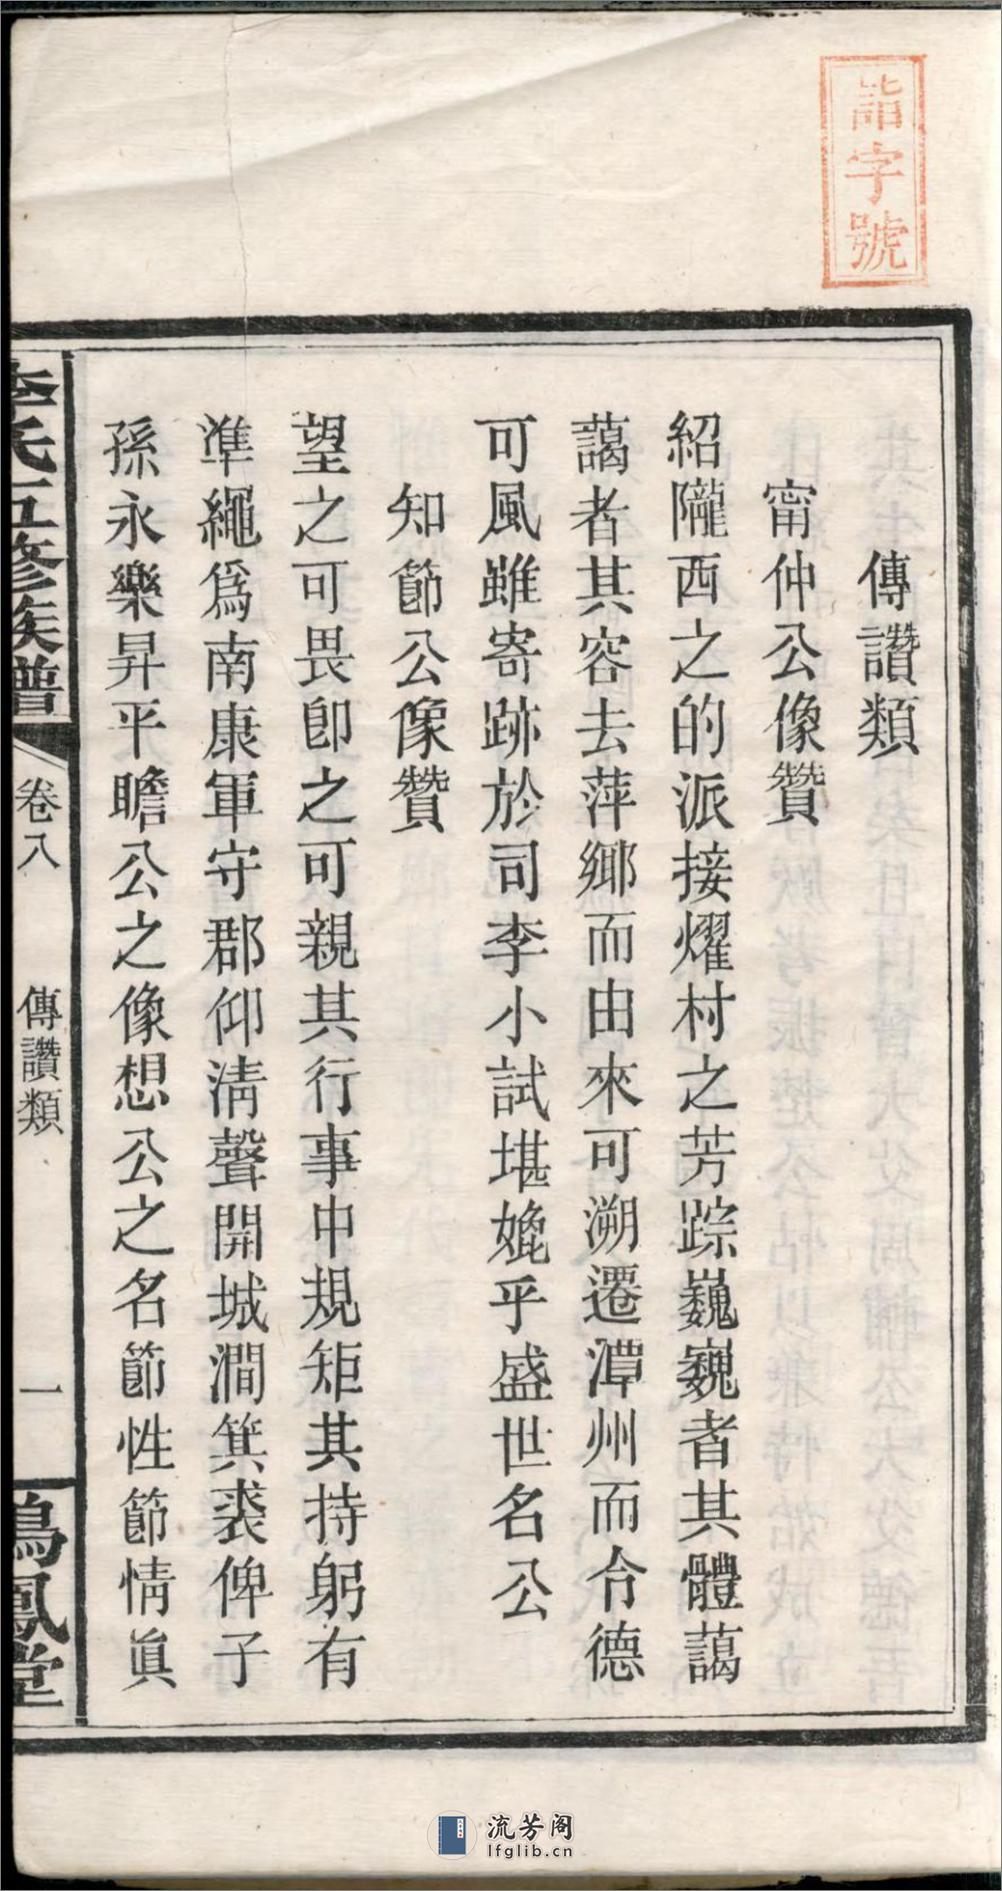 詣字號
傳讚類
甯仲公像贊
紹隴西之的派接燿村之芳踪巍巍者其體藹
藹者其容去萍鄉而由來可溯遷潭州而令德
可風雖寄跡於司李小試堪媲乎盛世名公
知節公像贊
望之可畏卽之可親其行事中規矩其持躬有
準繩爲南康軍守郡仰淸聲開城澗箕裘俾子
孫永樂昇平瞻公之像想公之名節性節情眞
李氏五修族譜
卷八
傳讚類
一
鳴鳳堂
流芳阁
lfglib.cn